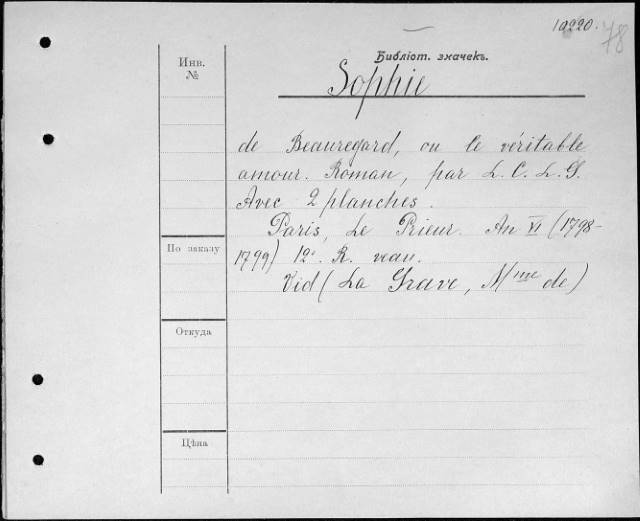 10220.
78
Инв.
№
Библіот. значекъ.
Sophie
de Beauregard, ou le véritable
amour. Roman, par L. C. L. G.
Avec 2 planches.
Paris, Le Prieur. An VI (1798-
1799) 12°. R. veau.
Vid (La Grave, Mme de)
По заказу
Откуда
Цѣна